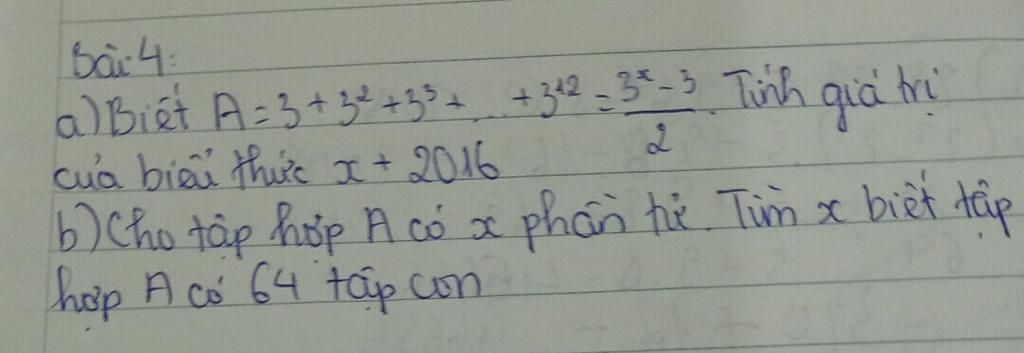 Bài 4:
a) Biết A = 3 + 3² + 3³ + ... + 3¹² = (3ˣ - 3)/2. Tính giá trị
của biểu thức x + 2016
b) Cho tập hợp A có x phần tử. Tìm x biết tập
hợp A có 64 tập con